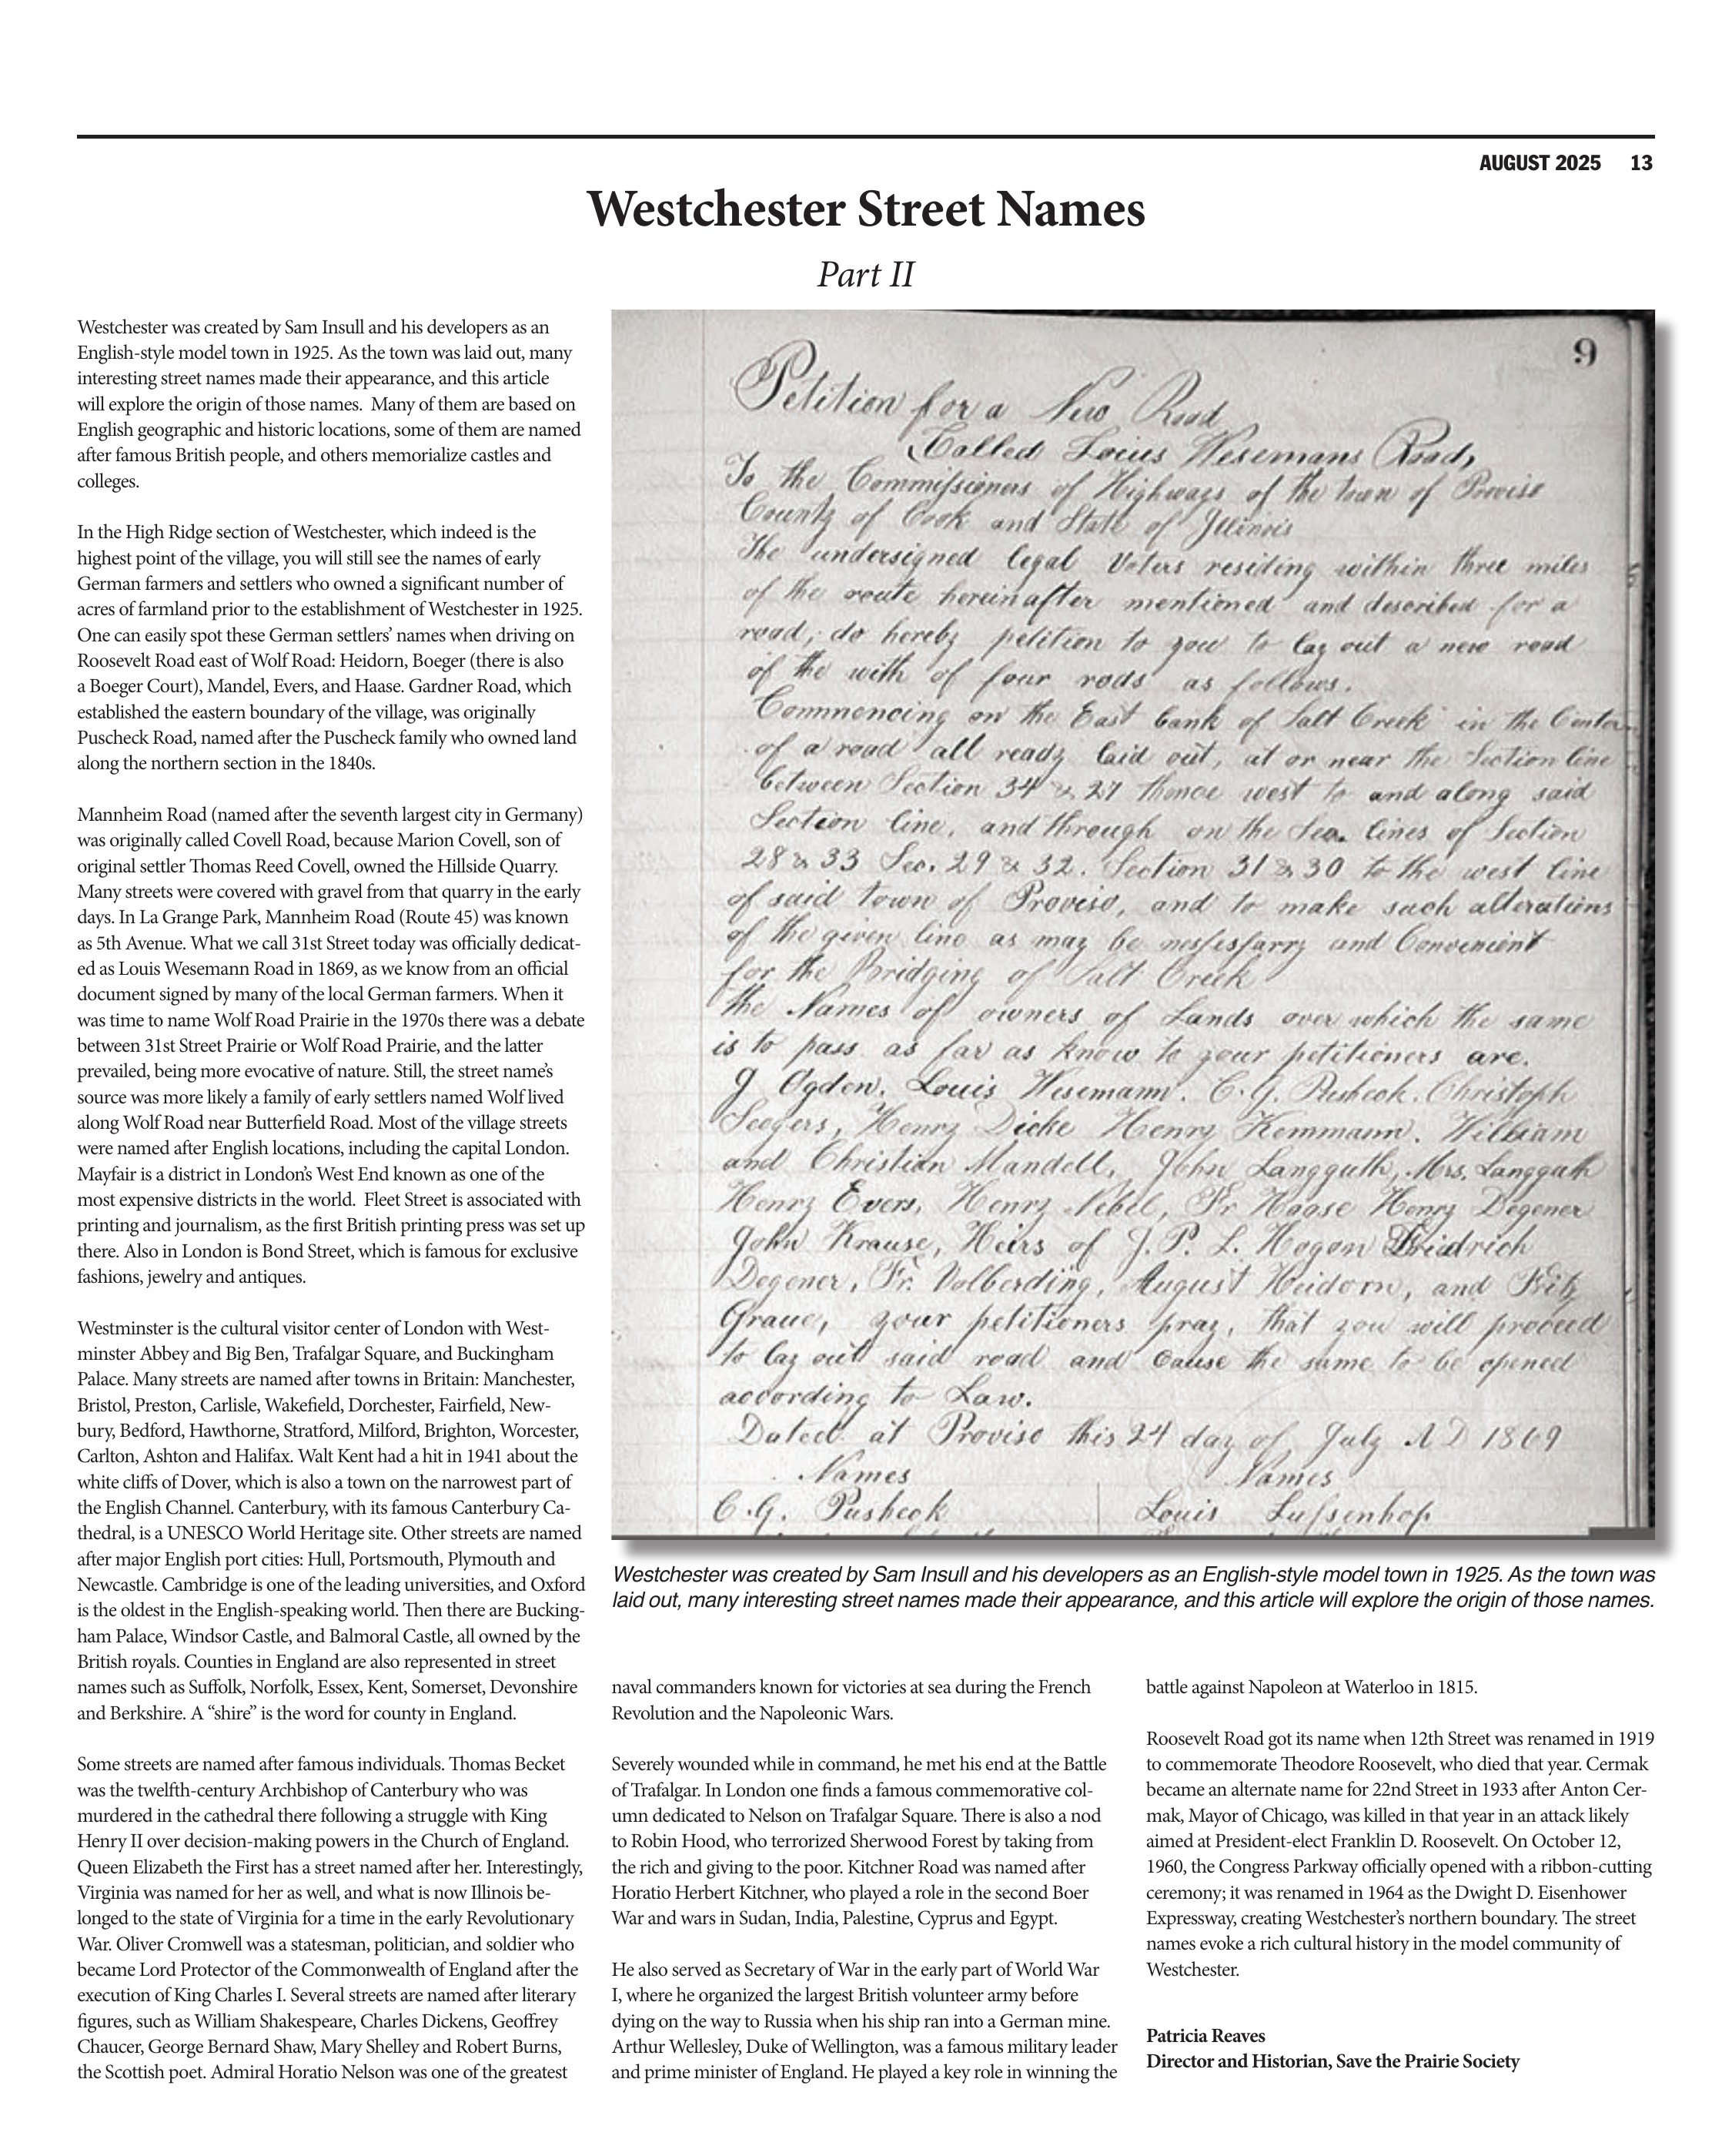 AUGUST 2025 13
Westchester Street Names
Part II
Westchester was created by Sam Insull and his developers as an
English-style model town in 1925. As the town was laid out, many
interesting street names made their appearance, and this article
will explore the origin of those names.  Many of them are based on
English geographic and historic locations, some of them are named
after famous British people, and others memorialize castles and
colleges.
In the High Ridge section of Westchester, which indeed is the
highest point of the village, you will still see the names of early
German farmers and settlers who owned a significant number of
acres of farmland prior to the establishment of Westchester in 1925.
One can easily spot these German settlers’ names when driving on
Roosevelt Road east of Wolf Road: Heidorn, Boeger (there is also
a Boeger Court), Mandel, Evers, and Haase. Gardner Road, which
established the eastern boundary of the village, was originally
Puscheck Road, named after the Puscheck family who owned land
along the northern section in the 1840s.
Mannheim Road (named after the seventh largest city in Germany)
was originally called Covell Road, because Marion Covell, son of
original settler Thomas Reed Covell, owned the Hillside Quarry.
Many streets were covered with gravel from that quarry in the early
days. In La Grange Park, Mannheim Road (Route 45) was known
as 5th Avenue. What we call 31st Street today was officially dedicat-
ed as Louis Wesemann Road in 1869, as we know from an official
document signed by many of the local German farmers. When it
was time to name Wolf Road Prairie in the 1970s there was a debate
between 31st Street Prairie or Wolf Road Prairie, and the latter
prevailed, being more evocative of nature. Still, the street name’s
source was more likely a family of early settlers named Wolf lived
along Wolf Road near Butterfield Road. Most of the village streets
were named after English locations, including the capital London.
Mayfair is a district in London’s West End known as one of the
most expensive districts in the world.  Fleet Street is associated with
printing and journalism, as the first British printing press was set up
there. Also in London is Bond Street, which is famous for exclusive
fashions, jewelry and antiques.
Westminster is the cultural visitor center of London with West-
minster Abbey and Big Ben, Trafalgar Square, and Buckingham
Palace. Many streets are named after towns in Britain: Manchester,
Bristol, Preston, Carlisle, Wakefield, Dorchester, Fairfield, New-
bury, Bedford, Hawthorne, Stratford, Milford, Brighton, Worcester,
Carlton, Ashton and Halifax. Walt Kent had a hit in 1941 about the
white cliffs of Dover, which is also a town on the narrowest part of
the English Channel. Canterbury, with its famous Canterbury Ca-
thedral, is a UNESCO World Heritage site. Other streets are named
after major English port cities: Hull, Portsmouth, Plymouth and
Newcastle. Cambridge is one of the leading universities, and Oxford
is the oldest in the English-speaking world. Then there are Bucking-
ham Palace, Windsor Castle, and Balmoral Castle, all owned by the
British royals. Counties in England are also represented in street
names such as Suffolk, Norfolk, Essex, Kent, Somerset, Devonshire
and Berkshire. A “shire” is the word for county in England.
Some streets are named after famous individuals. Thomas Becket
was the twelfth-century Archbishop of Canterbury who was
murdered in the cathedral there following a struggle with King
Henry II over decision-making powers in the Church of England.
Queen Elizabeth the First has a street named after her. Interestingly,
Virginia was named for her as well, and what is now Illinois be-
longed to the state of Virginia for a time in the early Revolutionary
War. Oliver Cromwell was a statesman, politician, and soldier who
became Lord Protector of the Commonwealth of England after the
execution of King Charles I. Several streets are named after literary
figures, such as William Shakespeare, Charles Dickens, Geoffrey
Chaucer, George Bernard Shaw, Mary Shelley and Robert Burns,
the Scottish poet. Admiral Horatio Nelson was one of the greatest
9
Petition for a New Road
Called Louis Wesemans Road,
To the Commissioners of Highways of the town of Proviso
County of Cook and State of Illinois
The undersigned legal Voters residing within three miles
of the route hereinafter mentioned and described for a
road, do hereby petition to you to lay out a new road
of the with of four rods as follows.
Commencing on the East bank of Salt Creek in the Center
of a road all ready laid out, at or near the Section line
between Section 34 & 27 thence west to and along said
Section line, and through on the Sec. lines of Section
28 & 33 Sec. 29 & 32. Section 31 & 30 to the west line
of said town of Proviso, and to make such alterations
of the given line as may be nessessarry and Convenient
for the Bridging of Salt Creek
the Names of owners of Lands over which the same
is to pass as far as know to your petitioners are.
J Ogden. Louis Wesemann. C. G. Pusheck. Christoph
Seegers, Henry Dicke Henry Kemmann. William
and Christian Mandell, John Langguth, Mrs. Langguth
Henry Evers, Henry Nebel, Fr Haase Henry Degener
John Krause, Heirs of J. P. L. Hogan Friedrich
Degener, Fr. Volberding, August Heidorn, and Fritz
Graue, your petitioners pray, that you will proceed
to lay out said road and Cause the same to be opened
according to Law.
Dated at Proviso this 24 day of July A D 1869
Names Names
C. G. Pusheck Louis Lussenhop
Westchester was created by Sam Insull and his developers as an English-style model town in 1925. As the town was
laid out, many interesting street names made their appearance, and this article will explore the origin of those names.
naval commanders known for victories at sea during the French
Revolution and the Napoleonic Wars.
Severely wounded while in command, he met his end at the Battle
of Trafalgar. In London one finds a famous commemorative col-
umn dedicated to Nelson on Trafalgar Square. There is also a nod
to Robin Hood, who terrorized Sherwood Forest by taking from
the rich and giving to the poor. Kitchner Road was named after
Horatio Herbert Kitchner, who played a role in the second Boer
War and wars in Sudan, India, Palestine, Cyprus and Egypt.
He also served as Secretary of War in the early part of World War
I, where he organized the largest British volunteer army before
dying on the way to Russia when his ship ran into a German mine.
Arthur Wellesley, Duke of Wellington, was a famous military leader
and prime minister of England. He played a key role in winning the
battle against Napoleon at Waterloo in 1815.
Roosevelt Road got its name when 12th Street was renamed in 1919
to commemorate Theodore Roosevelt, who died that year. Cermak
became an alternate name for 22nd Street in 1933 after Anton Cer-
mak, Mayor of Chicago, was killed in that year in an attack likely
aimed at President-elect Franklin D. Roosevelt. On October 12,
1960, the Congress Parkway officially opened with a ribbon-cutting
ceremony; it was renamed in 1964 as the Dwight D. Eisenhower
Expressway, creating Westchester’s northern boundary. The street
names evoke a rich cultural history in the model community of
Westchester.
Patricia Reaves
Director and Historian, Save the Prairie Society